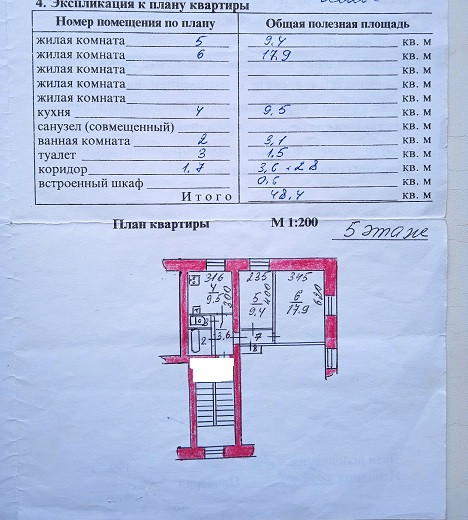 4. Экспликация к плану квартиры
Номер помещения по плану Общая полезная площадь
жилая комната 5 9.4 кв. м
жилая комната 6 17.9 кв. м
жилая комната кв. м
жилая комната кв. м
жилая комната кв. м
кухня 4 9.5 кв. м
санузел (совмещенный) кв. м
ванная комната 2 3,1 кв. м
туалет 3 1,5 кв. м
коридор 1.7 3,6 + 2.8 кв. м
встроенный шкаф 0,6 кв. м
Итого 48,4 кв. м
План квартиры М 1:200
5 этаж
316 235 345
4 300 400 630
9.5 5 6
9,4 17.9
3 1
2 3,6 7
8